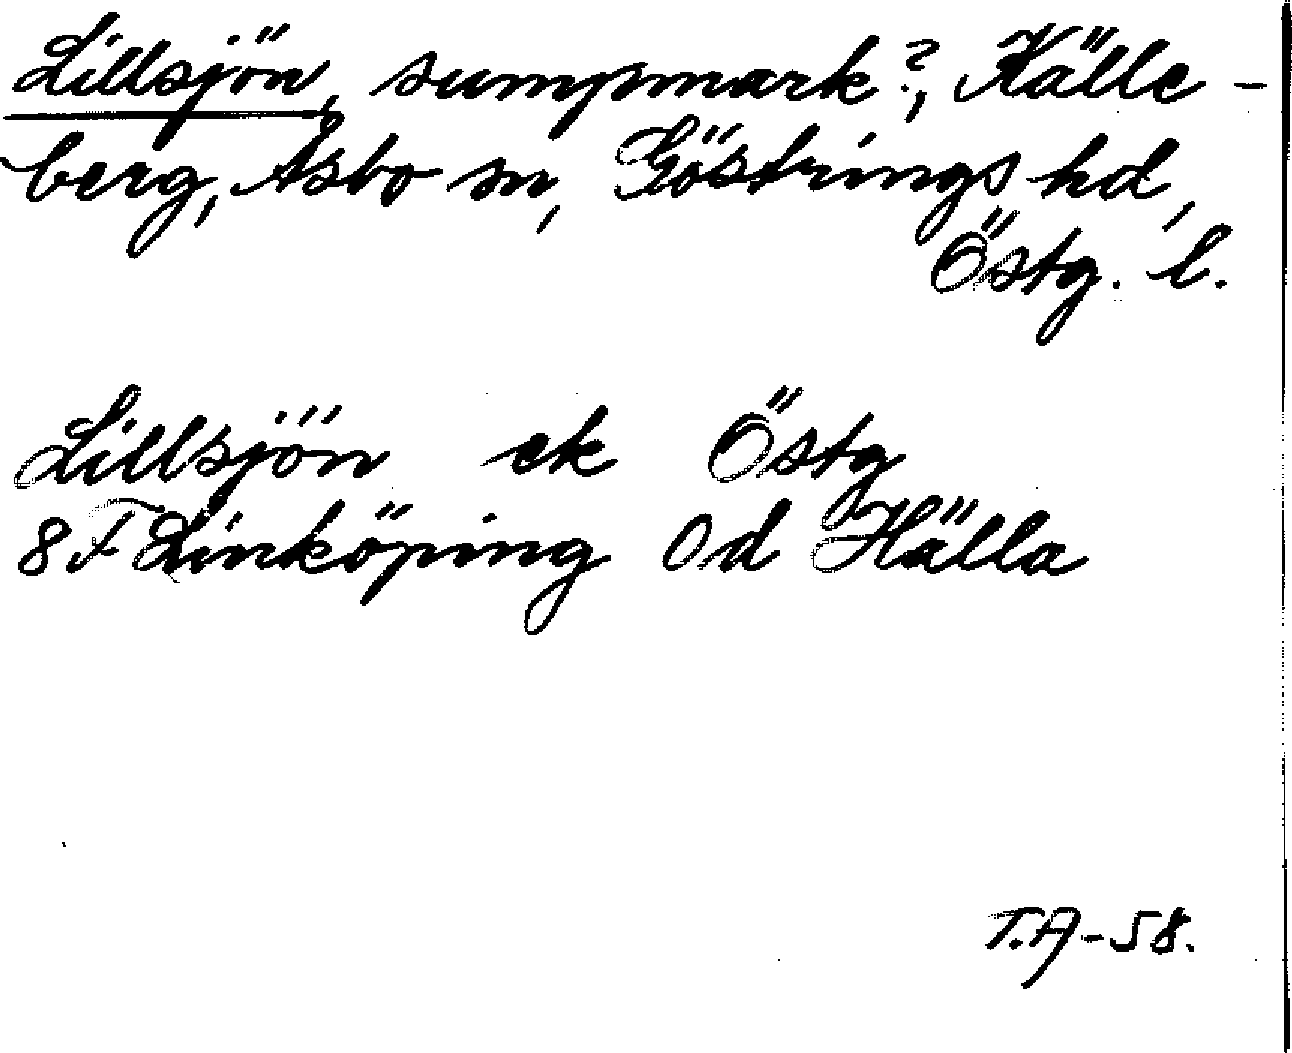 Lillsjön, sumpmark?, Källe-
berg, Åsbo sn, Göstrings hd,
Östg. l.
Lillsjön ek Östg
8F Linköping Od Hälla
T.A-58.